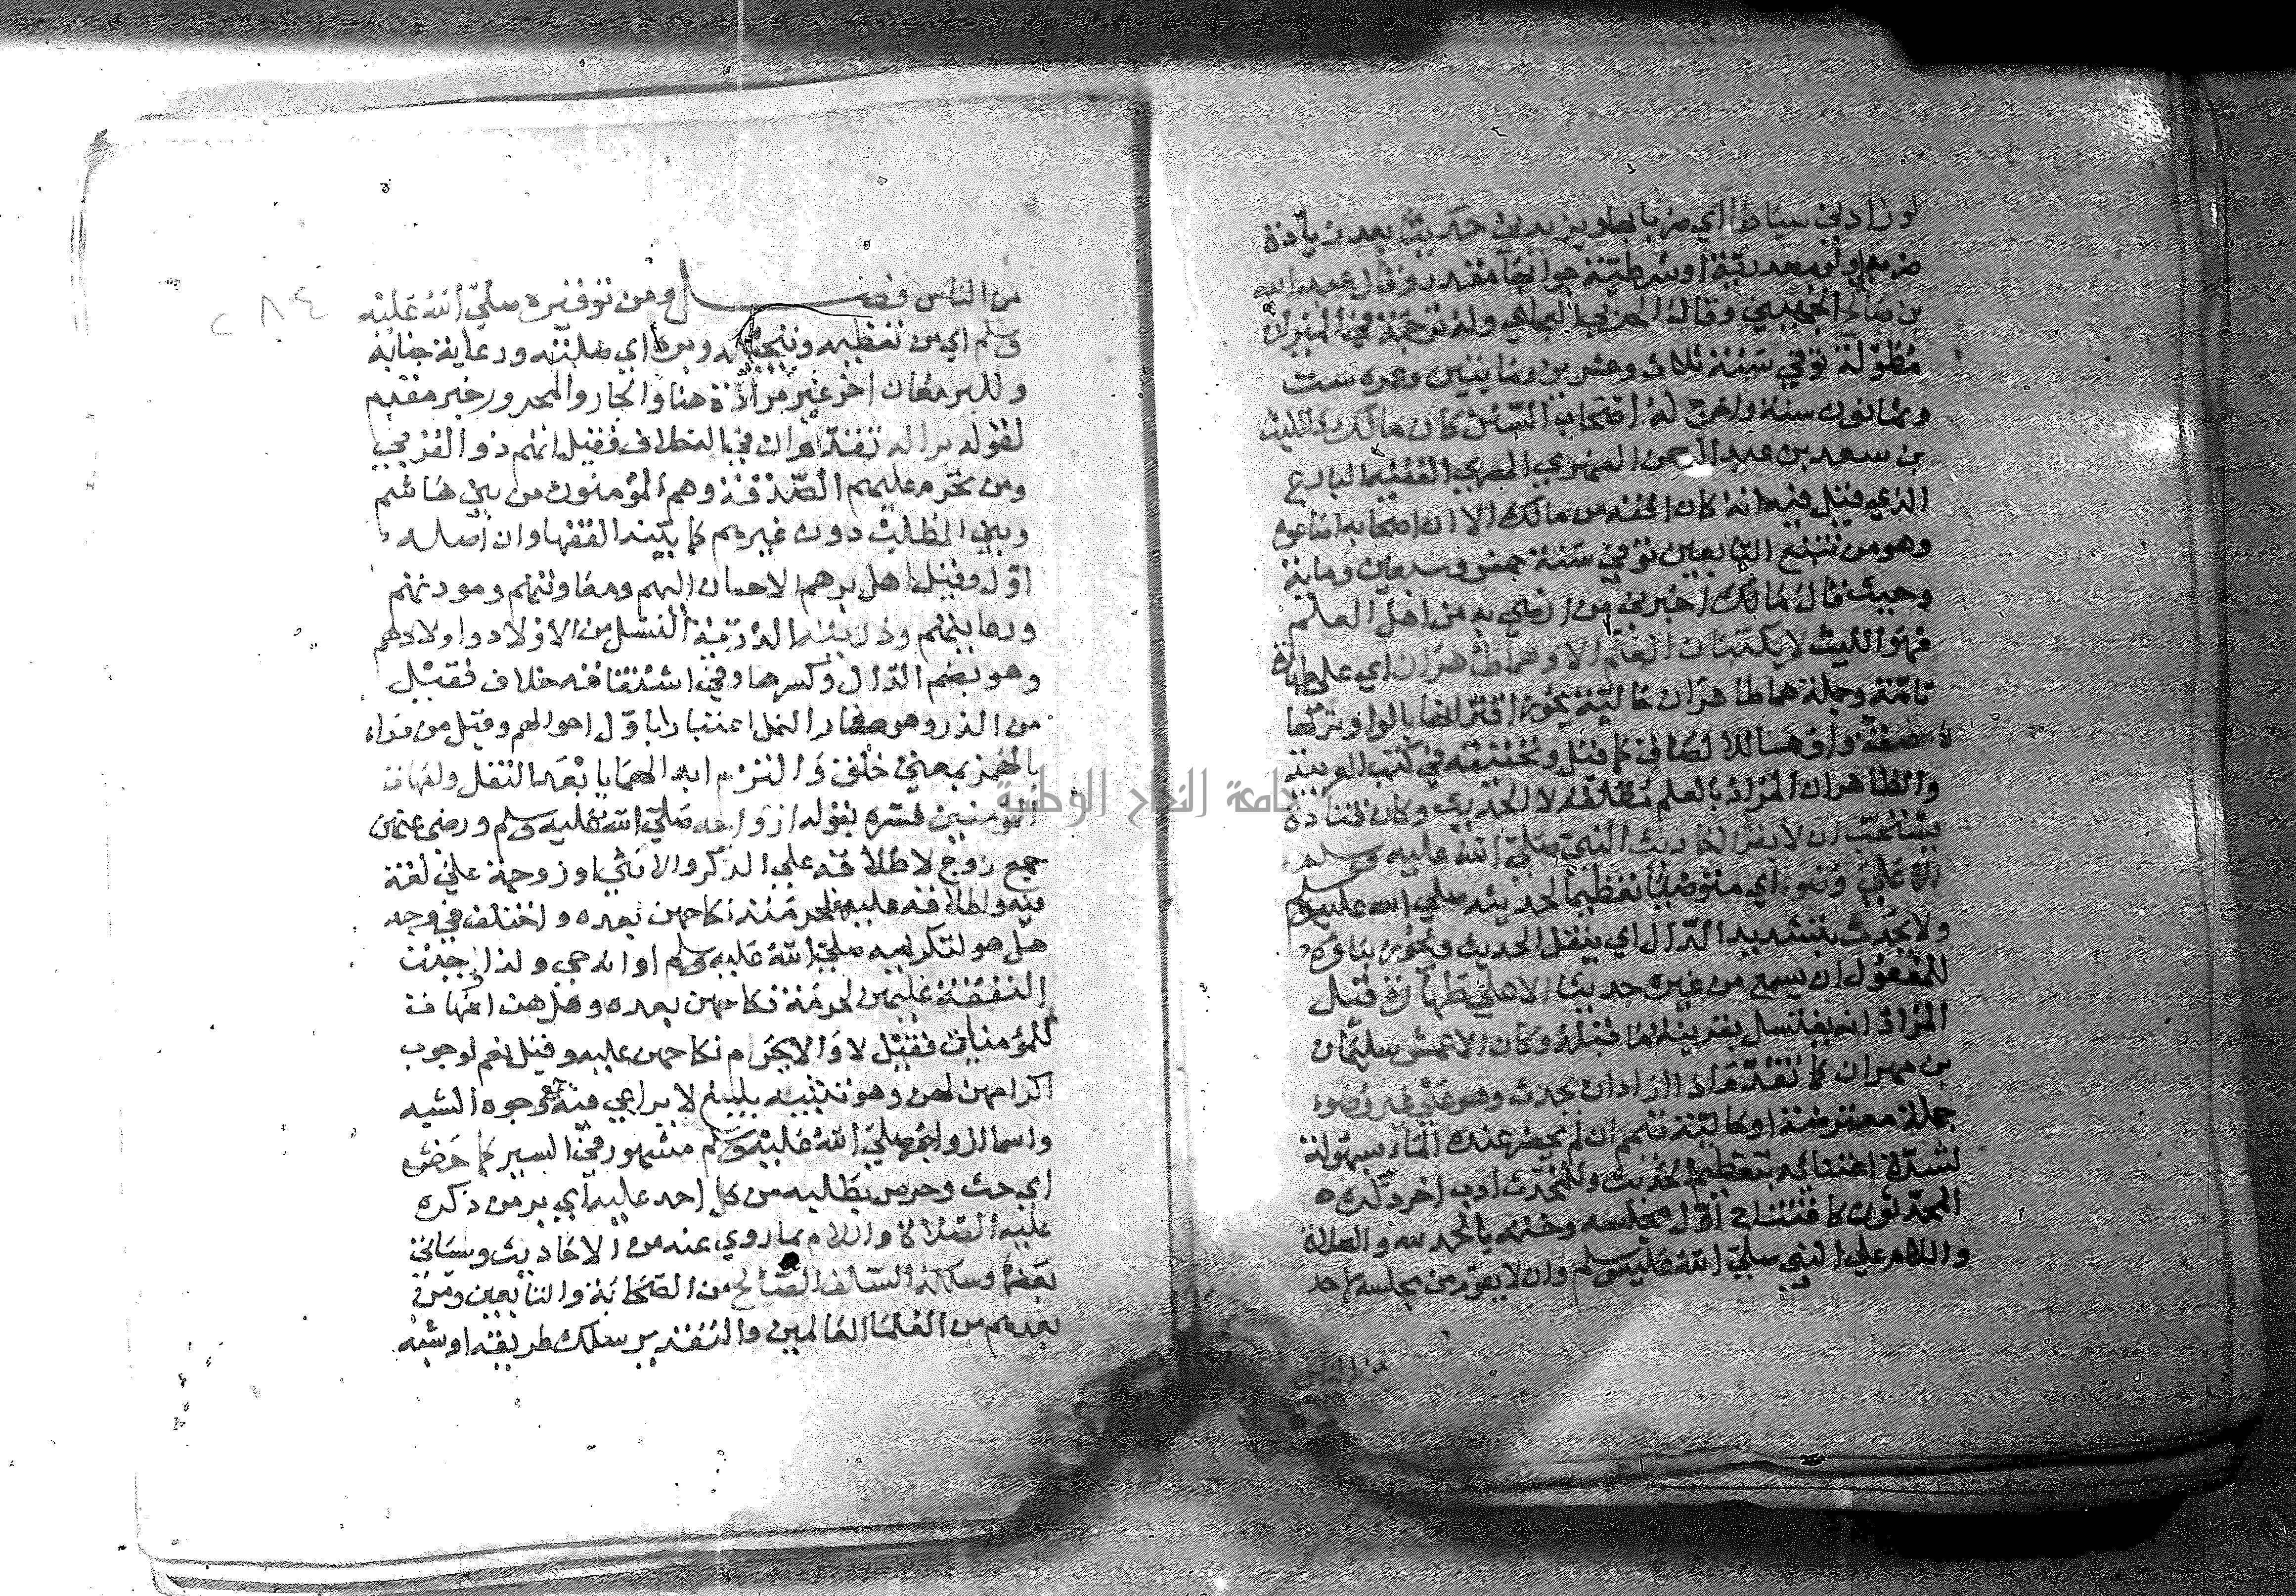 لو زادني سياطا اي ضربا بها ويزيدني حديثا بعد زيادة
ضربها ولو مصدرية او شرطية جوابها مقدر وقال عبد الله
بن صالح الجهني وقال المزي اليماني وله ترجمة في الميزان
مطولة توفي سنة ثلاث وعشرين ومايتين وعمره ست
وثمانون سنة واخرج له اصحاب السنن كان مالك والليث
بن سعد بن عبد الرحمن الفهري المصري الفقيه البارع
الذي قيل فيه انه كان افقه من مالك الا ان اصحابه اضاعوه
وهو من تبع التابعين توفي سنة خمس وسبعين وماية
وحيث قال مالك اخبرني من ارضي به من اهل العلم
فهو الليث لا يكتبان العلم الا وهما طاهران اي علي طهارة
تامة وجملة هما طاهران حالية يجوز اقترانها بالواو وتركها
لا صفة واو هما لللصاق كما قيل وتحقيقه في كتب العربية
والظاهر ان المراد بالعلم مطلقه لا الحديث وكان قتادة
يستحب ان لا يقرا احاديث النبي صلي الله عليه وسلم
الا علي وضوء اي متوضيا تعظيما لحديثه صلي الله عليه وسلم
ولا يحدث بتشديد الدال اي ينقل الحديث ويجوز بناؤه
للمفعول ان يسمع من غيره حديثا الا علي طهارة قيل
المراد انه يغتسل بقرينة ما قبله وكان الاعمش سليمان
بن مهران كما تقدم اذا اراد ان يحدث وهو علي غير وضوء
جملة معترضة او حالية تيمم ان لم يحضر عنده الماء بسهولة
لشدة اعتنائه بتعظيم الحديث وللمحدث ادب اخر ذكره
المحدثون كافتتاح اول مجلسه وختمه بالحمد لله والصلاة
والسلام علي النبي صلي الله عليه وسلم وان لا يقوم من مجلسه لاحد
من الناس
٢٨٤
من الناس فصل ومن توقيره صلي الله عليه
وسلم اي من تعظيمه وتبجيله وبره اي صلته ورعاية جنابه
وللبر معان اخر غير مرادة هنا والجار والمجرور خبر مقدم
لقوله بر اله تقدم ان في الال خلاف فقيل انهم ذو القربي
ومن تحرم عليهم الصدقة وهم المؤمنون من بني هاشم
وبني المطلب دون غيرهم كما بينه الفقها وان اصله
اول وقيل اهل برهم الاحسان اليهم ومعاونتهم ومودتهم
ورعايتهم وذريته الذرية النسل من الاولاد واولادهم
وهو بضم الذال وكسرها وفي اشتقاقه خلاف فقيل
من الذر وهو صغار النمل اعتبارا باول احوالهم وقيل من ذراء
بالهمز بمعني خلق والتزم ابدالها يا بعد النقل وامهات
المؤمنين فسره بقوله ازواجه صلي الله عليه وسلم ورضي عنهن
جمع زوج لاطلاقه علي الذكر والانثي او زوجة علي لغة
فيه واطلاقه عليهن لحرمة نكاحهن بعده واختلف في وجه
هل هو لتكريمه صلي الله عليه وسلم او انه حي ولذا وجبت
النفقة عليهن لحرمة نكاحهن بعده وهل هن امهات
للمؤمنيات فقيل لا والا لا يحرم نكاحهن عليه وقيل نعم لوجوب
اكرامهن لهن وهو تشبيه بليغ لا يراعي فيه جميع وجوه الشبه
واسما ازواجه صلي الله عليه وسلم مشهور في السير كما حض
اي حث وحرص بطلبه من كل احد عليه اي بر من ذكره
عليه الصلاة والسلام بما روي عنه من الاحاديث وسياتي
بعضها وسلكه السلف الصالح من الصحابة والتابعين ومن
بعدهم من العلما العالمين والتقدير سلك طريقه او شبه